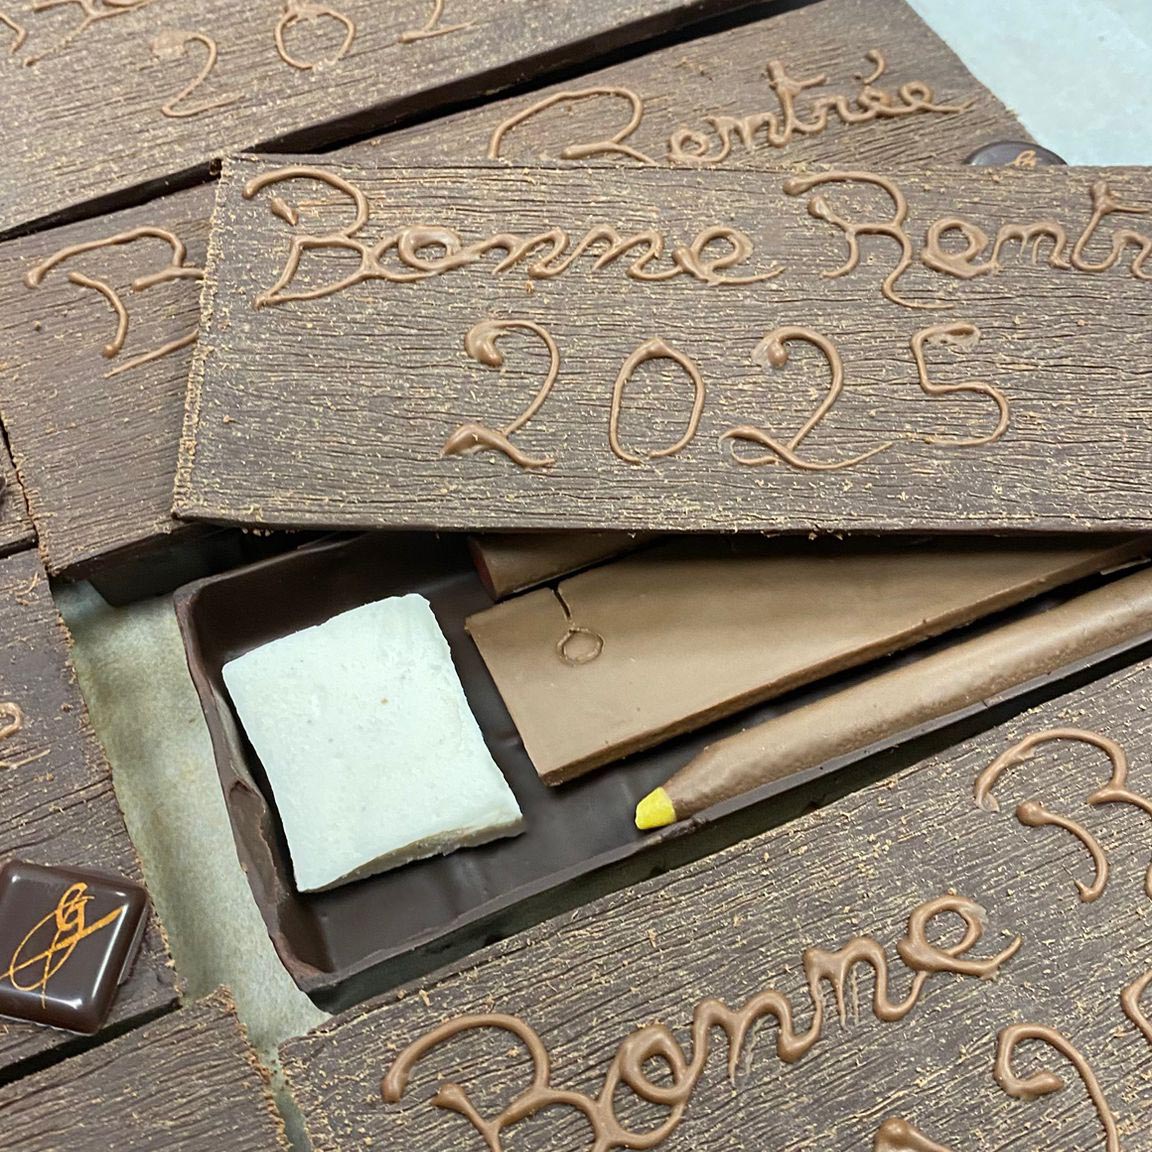 202
Rentrée
Bonne Rentr
2025
B
Bonne R
2